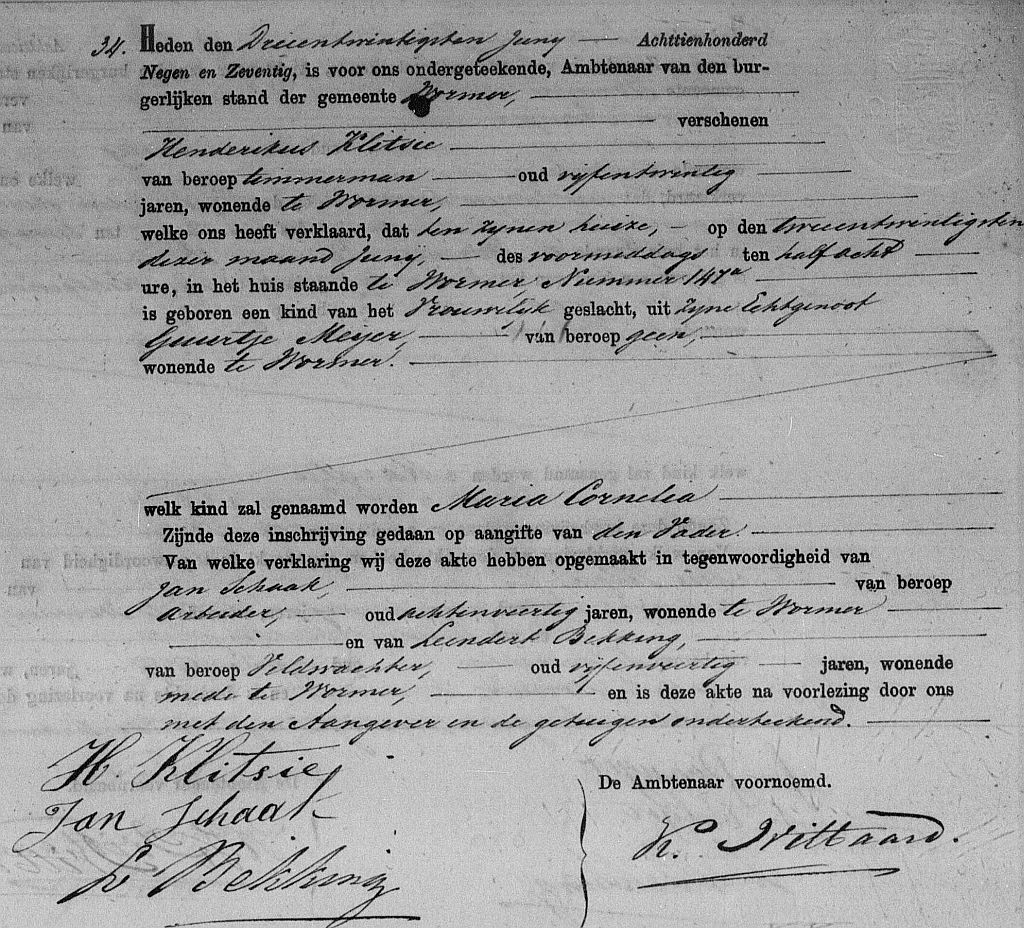 34. Heden den Drieentwintigsten Juny Achttienhonderd
Negen en Zeventig, is voor ons ondergeteekende, Ambtenaar van den bur-
gerlijken stand der gemeente Wormer,
verschenen
Henderikus Klitsie
van beroep timmerman oud vijfentwintig
jaren, wonende te Wormer,
welke ons heeft verklaard, dat ten zynen huize, op den tweeentwintigsten
dezer maand Juny, des voormiddags ten half acht
ure, in het huis staande te Wormer, Nummer 147a
is geboren een kind van het Vrouwlijk geslacht, uit zyne Echtgenoot
Guurtje Meijer, van beroep geen,
wonende te Wormer.
welk kind zal genaamd worden Maria Cornelia
Zijnde deze inschrijving gedaan op aangifte van den Vader.
Van welke verklaring wij deze akte hebben opgemaakt in tegenwoordigheid van
Jan Schaak, van beroep
Arbeider, oud achtenveertig jaren, wonende te Wormer
en van Leendert Bekking,
van beroep Veldwachter, oud vijfenveertig jaren, wonende
mede te Wormer, en is deze akte na voorlezing door ons
met den Aangever en de getuigen onderteekend.
H. Klitsie
De Ambtenaar voornoemd.
Jan Schaak
K.
L Bekking